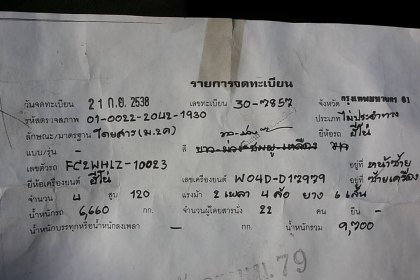 รายการจดทะเบียน
วันจดทะเบียน 21 ก.ย. 2538 เลขทะเบียน 30-7857 จังหวัด กรุงเทพมหานคร 01
รหัสตรวจสภาพ 01-0022-2042-1930 ประเภท ไม่ประจำทาง
ลักษณะ/มาตรฐาน โดยสาร (ม.2ค) ยี่ห้อรถ ฮีโน่
แบบ/รุ่น - สี ขาว-ม่วง-ชมพู-เหลือง
เลขตัวรถ FC2WHLZ-10023 อยู่ที่ หน้าซ้าย
ยี่ห้อเครื่องยนต์ ฮีโน่ เลขเครื่องยนต์ WO4D-D17979 อยู่ที่ ซ้ายเครื่อง
จำนวน 4 สูบ 120 แรงม้า 2 เพลา 4 ล้อ ยาง 6 เส้น
น้ำหนักรถ 6,660 กก. จำนวนผู้โดยสารนั่ง 22 คน ยืน -
น้ำหนักบรรทุกหรือน้ำหนักลงเพลา - กก. น้ำหนักรวม 9,700
79